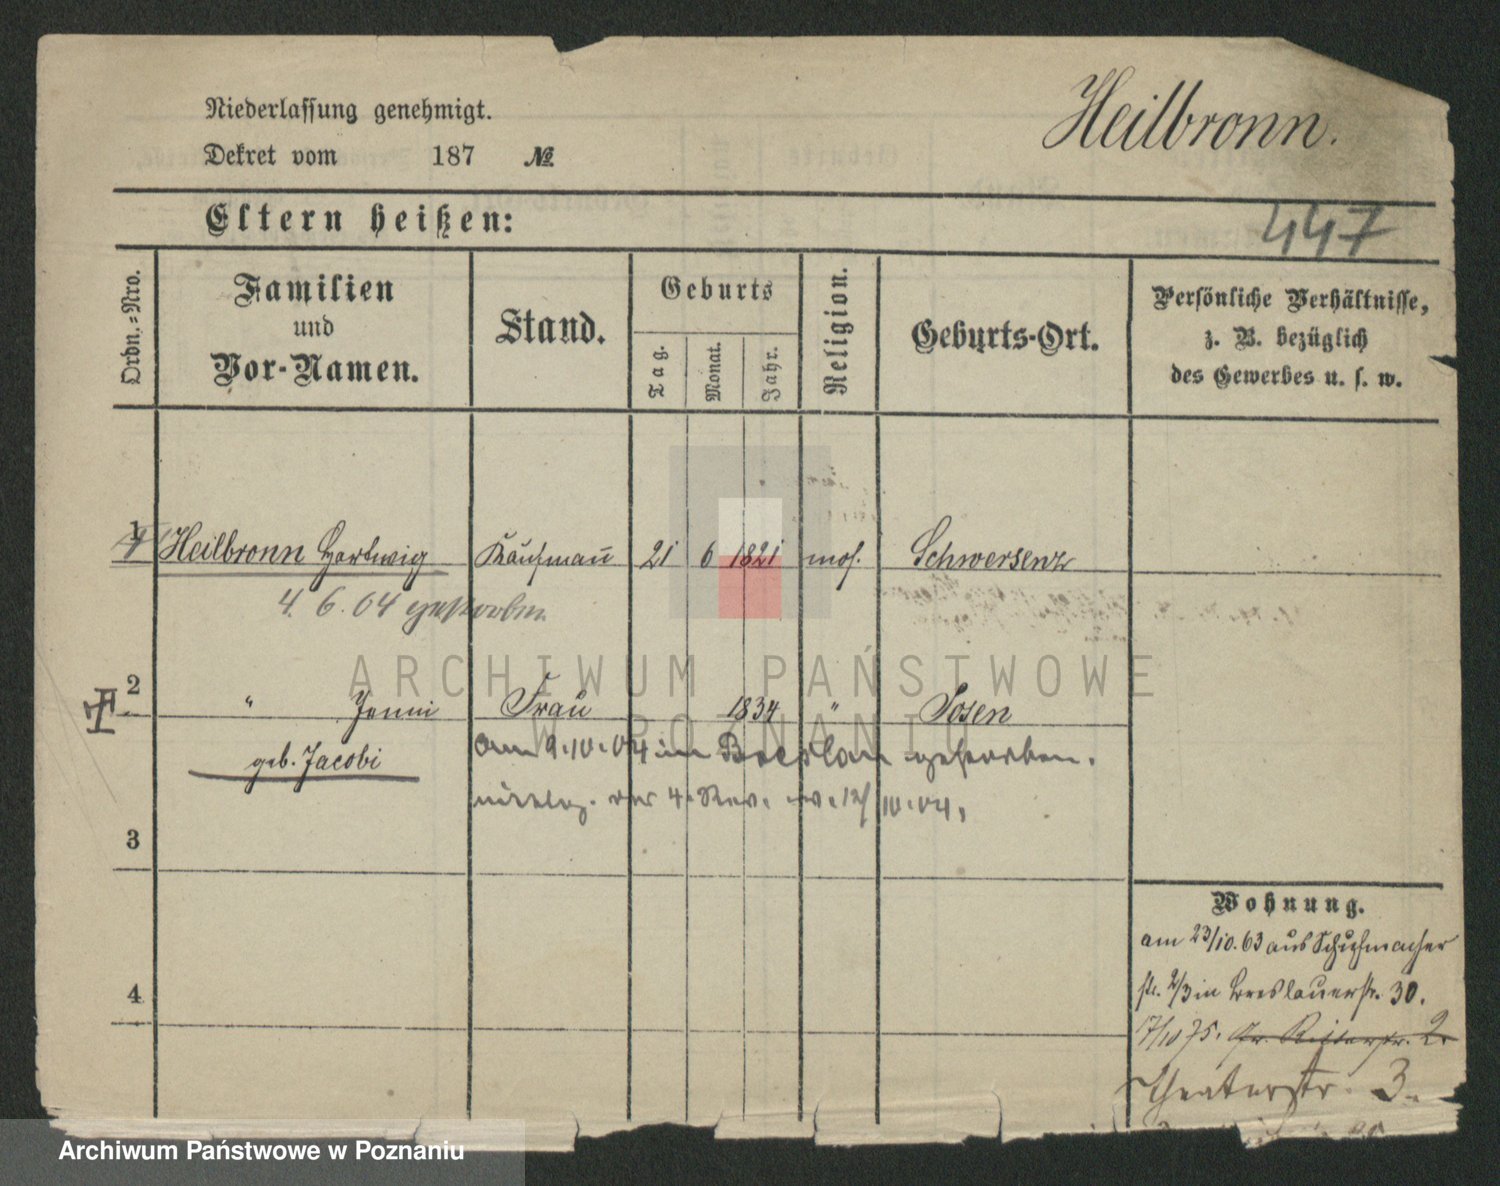 Niederlassung genehmigt.
Heilbronn.
Dekret vom 187 №
Eltern heißen:
447
Ordn.-Nro.
Familien und Vor-Namen.
Stand.
Geburts
Tag.
Monat.
Jahr.
Religion.
Geburts-Ort.
Persönliche Verhältnisse,
z. B. bezüglich
des Gewerbes u. s. w.
1 Heilbronn Hartwig Kaufmann 21 6 1821 mos. Schwersenz
4. 6. 04 gestorben
ARCHIWUM PAŃSTWOWE
W POZNANIU
2 " Jenni Frau 1834 " Posen
geb. Jacobi am 9.10.04 in Breslau gestorben.
der 4. Rev. v. 12/10.04.
3
Wohnung.
am 23/10.63 aus Schuhmacher
4
str. 2/3 in Breslauerstr. 30.
17/10 75. Gr. Ritterstr. 2.
Theaterstr. 3.
Archiwum Państwowe w Poznaniu